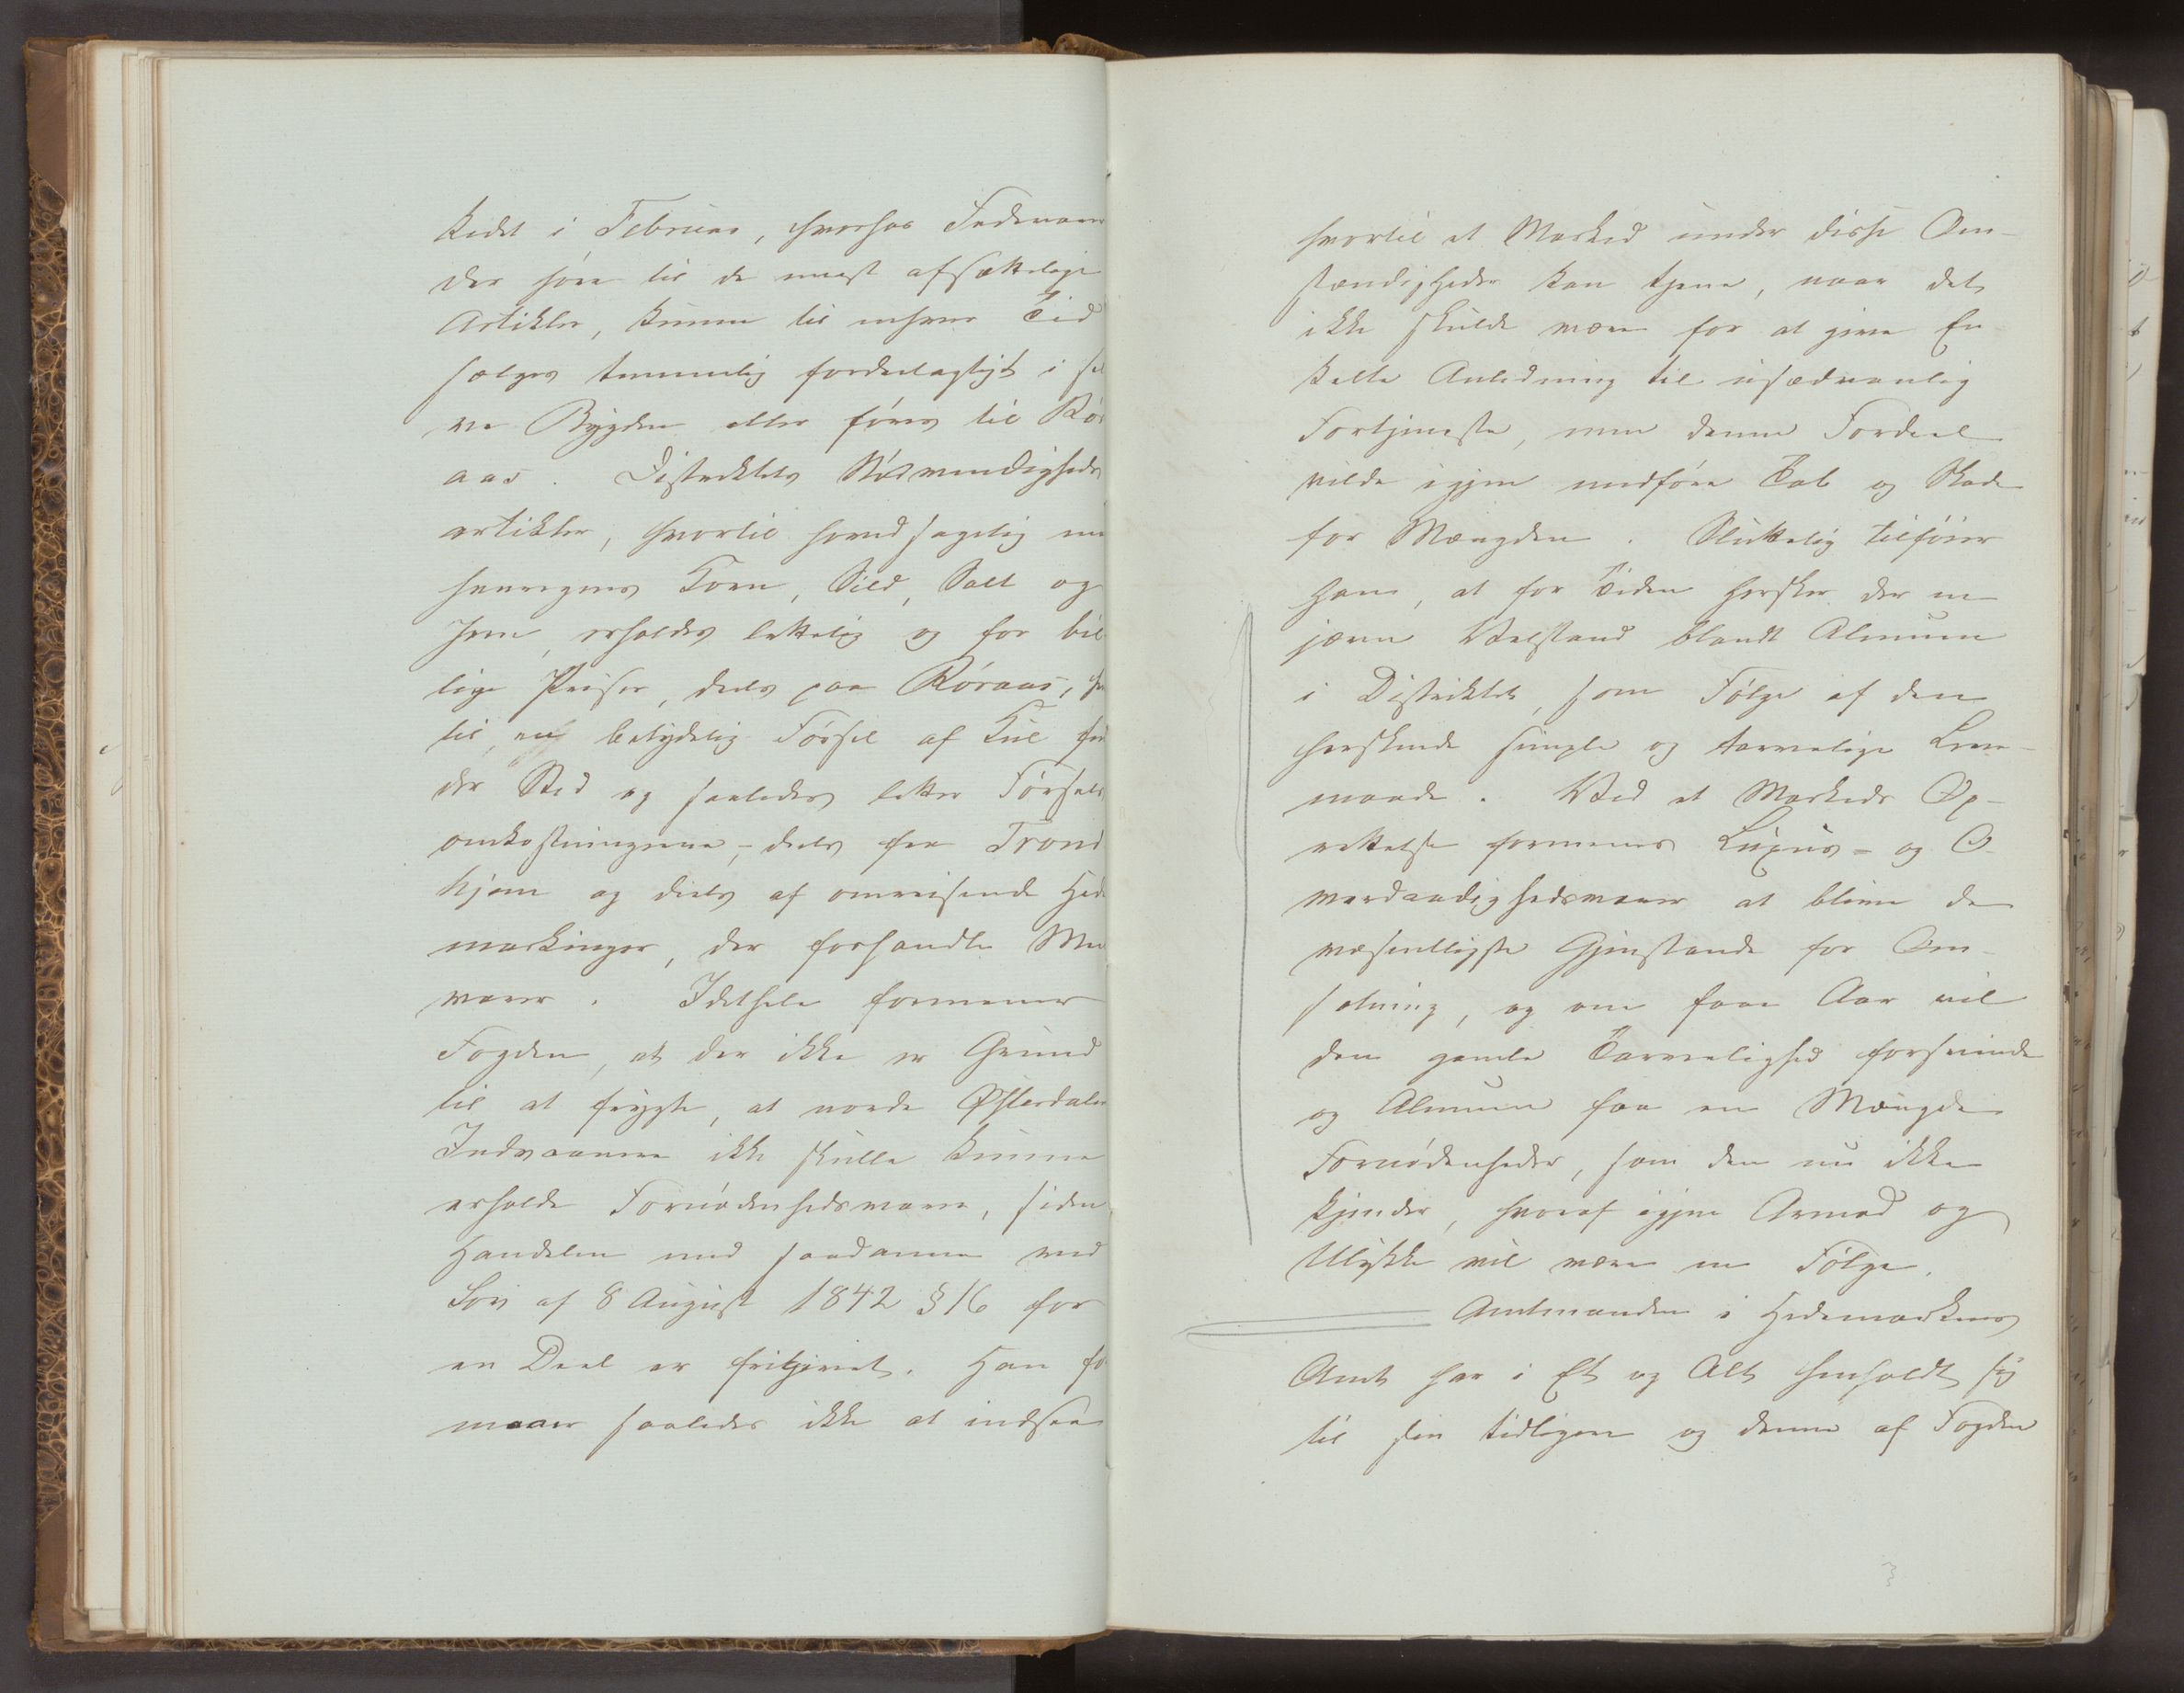 ked i Februar, hvorhos Fedevarer
der höre til de meest afsættelige
Artikler, kunne til enhver Tid
sælges temmelig fordeelagtigt i sel
ve Bygden eller föres til Rör
aas. Distriktets Nödvendigheds
artikler, hvortil hovedsagelig
henregnes Korn, Sild, Salt og
Jern, erholdes lettelig og for bil
lige Priser, deels paa Röraas,
til en betydelig Försel af Kul
der Sted og saaledes letter Försels
omkostningerne, – deels fra Trond
hjem og deels af omreisende Hede
markinger, der forhandle
varer. Idethele formener
Fogden, at der ikke er Grund
til at frygte, at nordre Østerdalens
Indvaanere ikke skulle kunne
erholde Fornödenhedsvarer, siden
Handelen med saadanne ved
Lov af 8 August 1842 § 16 for
en Deel er frigivet. Han for
maaer saaledes ikke at indsee
hvortil et Marked under disse Om-
stændigheder kan tjene, naar det
ikke skulde være for at give En
kelte Anledning til usædvanlig
Fortjeneste, men denne Fordeel
vilde igjen medföre Tab og Skade
for Mængden. Sluttelig tilföier
han, at for Tiden hersker der en
jævn Velstand blandt Almuen
i Distriktet, som Fölge af den
herskende simple og tarvelige Leve-
maade. Ved et Markeds Op-
rettelse formenes Luxus- og U-
nödvendighedsvarer at blive de
væsentligste Gjenstande for Om-
sætning, og om faae Aar vil
den gamle Tarvelighed forsvinde
og Almuen faae en Mængde
Fornödenheder, som den nu ikke
kjender, hvoraf igjen Armod og
Ulykke vil være en Fölge.
Amtmanden i Hedemarkens
Amt har i Et og Alt henholdt sig
til sin tidligere og denne af Fogden